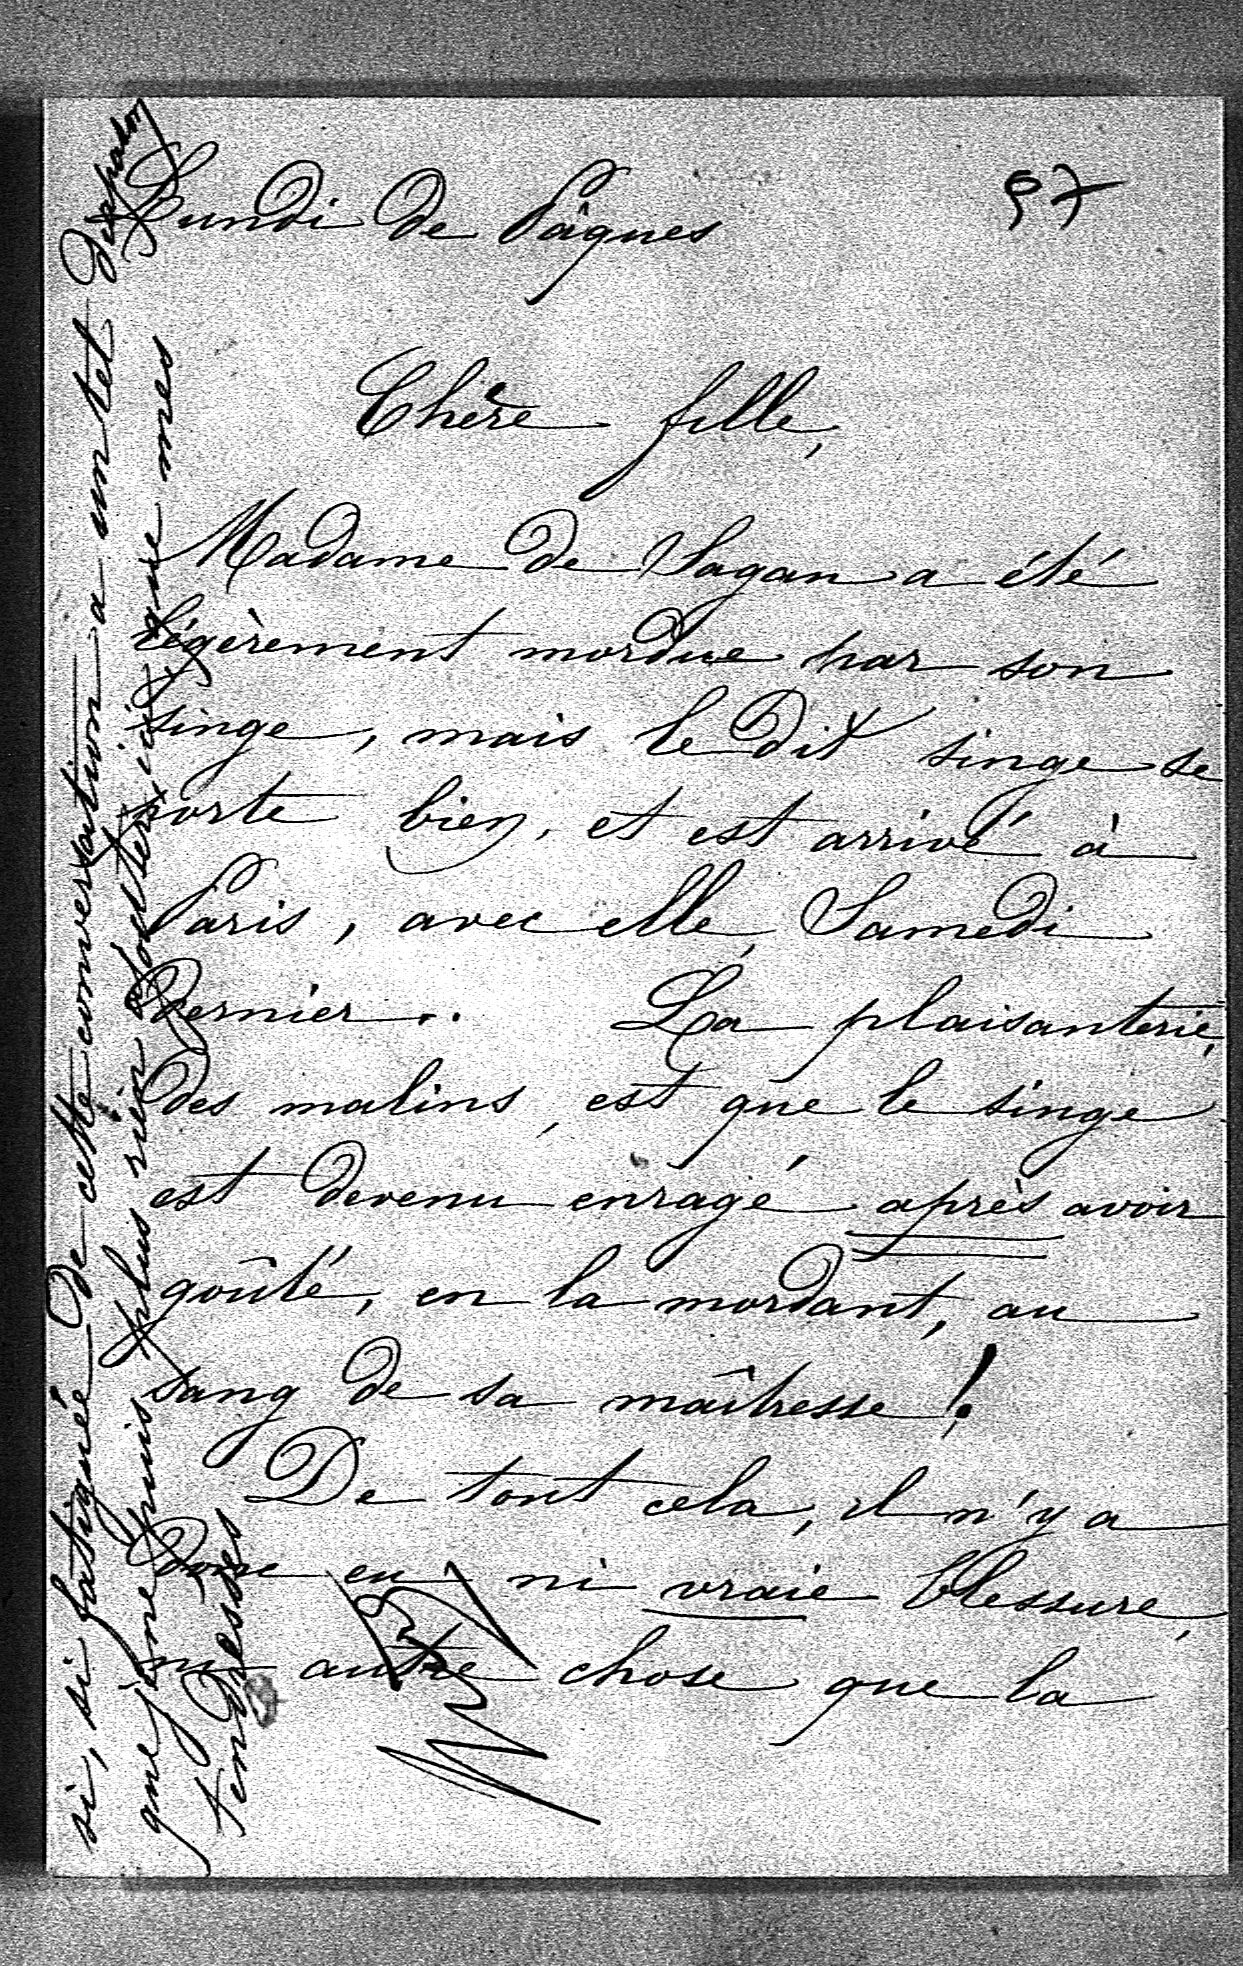 97
Lundi de Pâques
Chère fille,
Madame de Sagan a été
légèrement mordue par son
singe, mais le dit singe se
porte bien, et est arrivé à
Paris, avec elle, Samedi
dernier.. La plaisanterie,
des malins, est que le singe
est devenu enragé après avoir
goûté, en la mordant, au
sang de sa maîtresse!
De tout cela, il n'y a
donc eu ni vraie blessure,
ni autre chose que la
si, si fatiguée de cette conversation à un tel diapason
que je ne puis plus rien ajouter ici que mes
tendresses